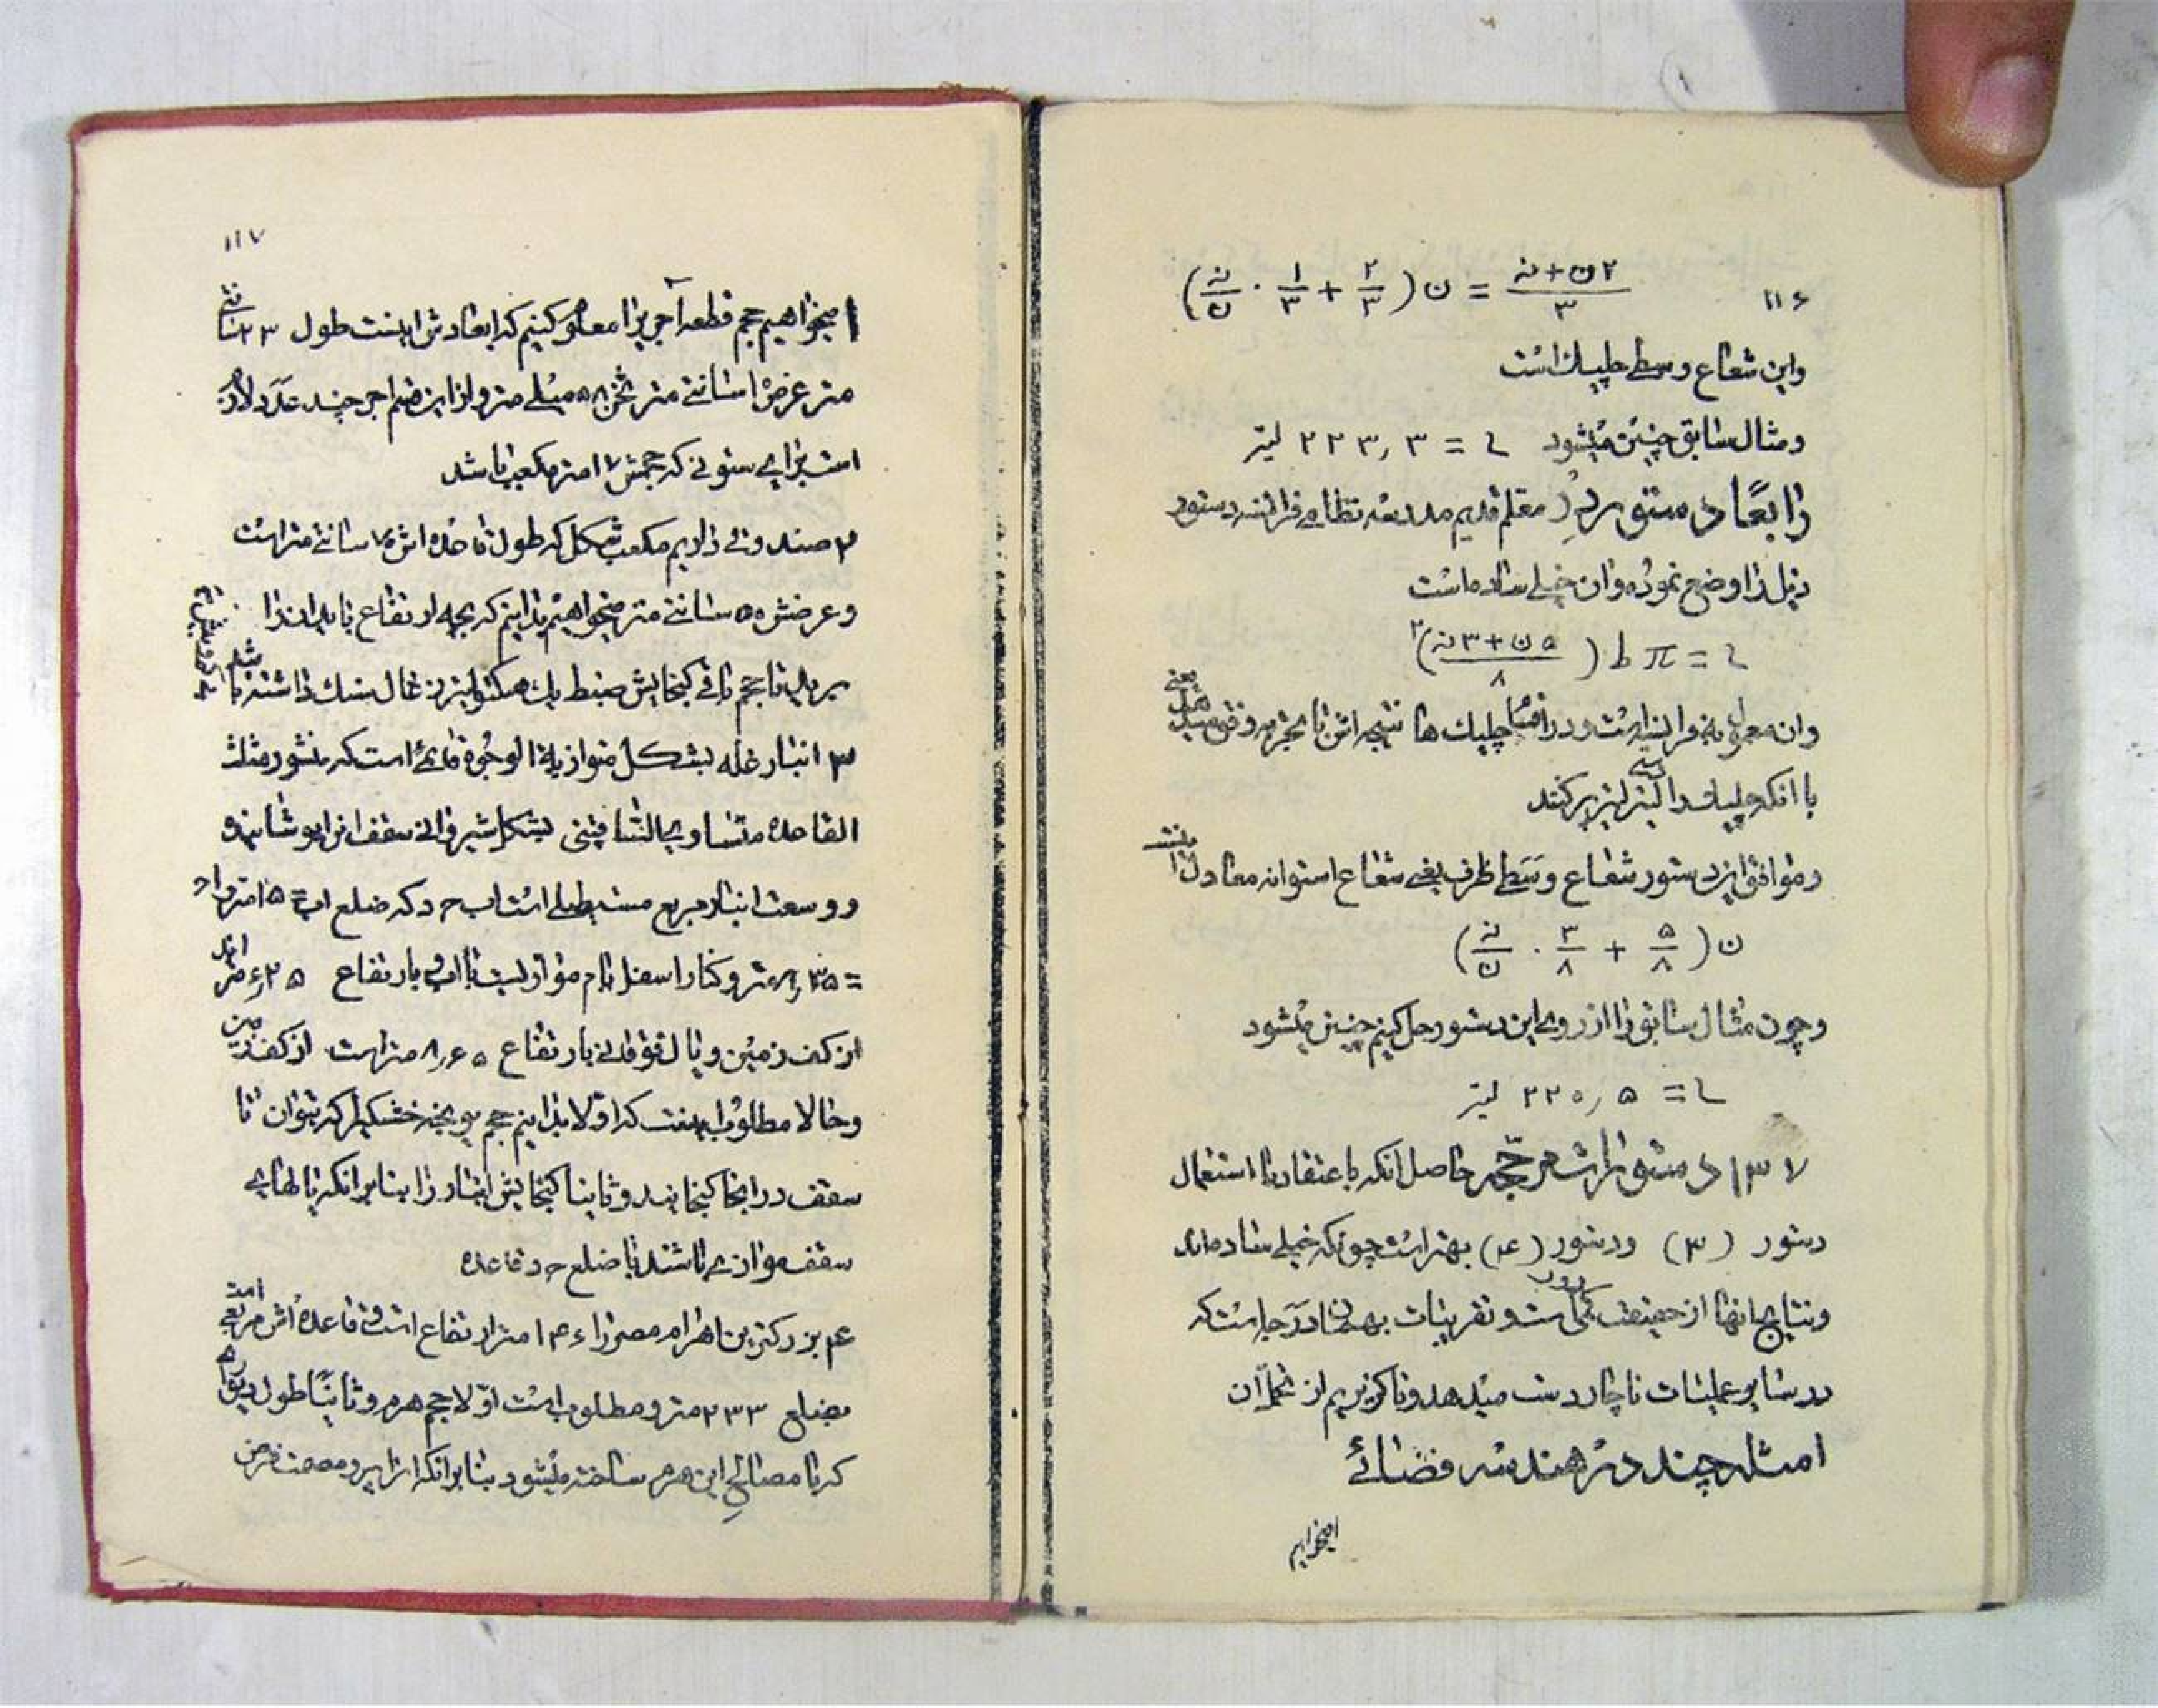 ۱۱۶
(ن/ن . ۱/۳ + ۲/۳) ن = ۲ن+ن/۳
واین شعاع وسطی چلیك است
ومثال سابق چنین میشود ح = ۲۲۳٫۳ لیتر
رابعًا دستور دز معلم قدیم مدرسه نظامی فرانسه دستور
ذیل را وضع نموده وان خیلی ساده است
ح = π ط (۵ن+۳ن/۸)۲
وان معمول به فرانسه است ودر چلیك ها نتیجه اش با تجربه وفق میدهد یعنی
با انکه چلیك را لیتر لیتر پر کنند
وموافق این دستور شعاع وسطی ظرف یعنی شعاع استوانه معادل
ن(۵/۸ + ۳/۸ . ن/ن)
وچون مثال سابق را از روی این دستور حل کنیم چنین میشود
ح = ۲۲۰٫۵ لیتر
۱۳۷ دستور حاصل انکه باعتقاد ما استعمال
دستور (۳) ودستور (۴) بهتر است چونکه خیلی ساده اند
ونتایج انها از حقیقت کمی دور است وتقریبات بهمان درجه است که
در سایر عملیات ناچار دست میدهد وناگزیریم از تحمل آن
امثله چند در هندسه فضائے
۱میخواهیم
۱۱۷
۱ میخواهیم حجم قطعه آجری را معلوم کنیم که ابعادش اینست طول ۲۳ سانتی
متر عرض ۱۱ سانتی متر ثخن ۵۸ میلی متر واز این قسم اجر چند عدد لازم
است برای ستونی که حجمش ۱۷ متر مکعب باشد
۲ صندوقی داریم مکعب شکل که طول قاعده اش ۷۸ سانتی متر است
وعرضش ۵۵ سانتی متر میخواهیم بدانیم که بچه ارتفاع باید انرا
برید تا حجم باقی گنجایش ضبط یك هکتولیتر زغال سنك داشته باشد
۳ انبار غله بشکل متوازیة الوجوه قائمی است که منشور مثلث
القاعده متساوی الساقینی بشکل شیروانی سقف انرا پوشانیده
ووسعت انبار مربع مستطیلی است اب حد که ضلع اب = ۱۵ متر واد
= ۸٫۳۵ متر وکنار اسفل بام موازیست با اب بارتفاع ۴٫۲۵ متر
از کف زمین ویال فوقانی بارتفاع ۸٫۶۵ متر است از کف زمین
وحالا مطلوب اینست که اولا بدانیم حجم یونجه خشکی را که بتوان تا
سقف در انجا گنجانید وثانیا گنجایش انبار را بنابر انکه یالهای
سقف موازی باشند با ضلع حد قاعده
۴ بزرکترین اهرام مصر را ۱۴۶ متر ارتفاع است وقاعده اش مربعی است
بضلع ۲۳۳ متر ومطلوب است اوّلا حجم هرم وثانیًا طول دیواری
که با مصالح این هرم ساخته میشود بنابر انکه انرا پر ومصمت فرض